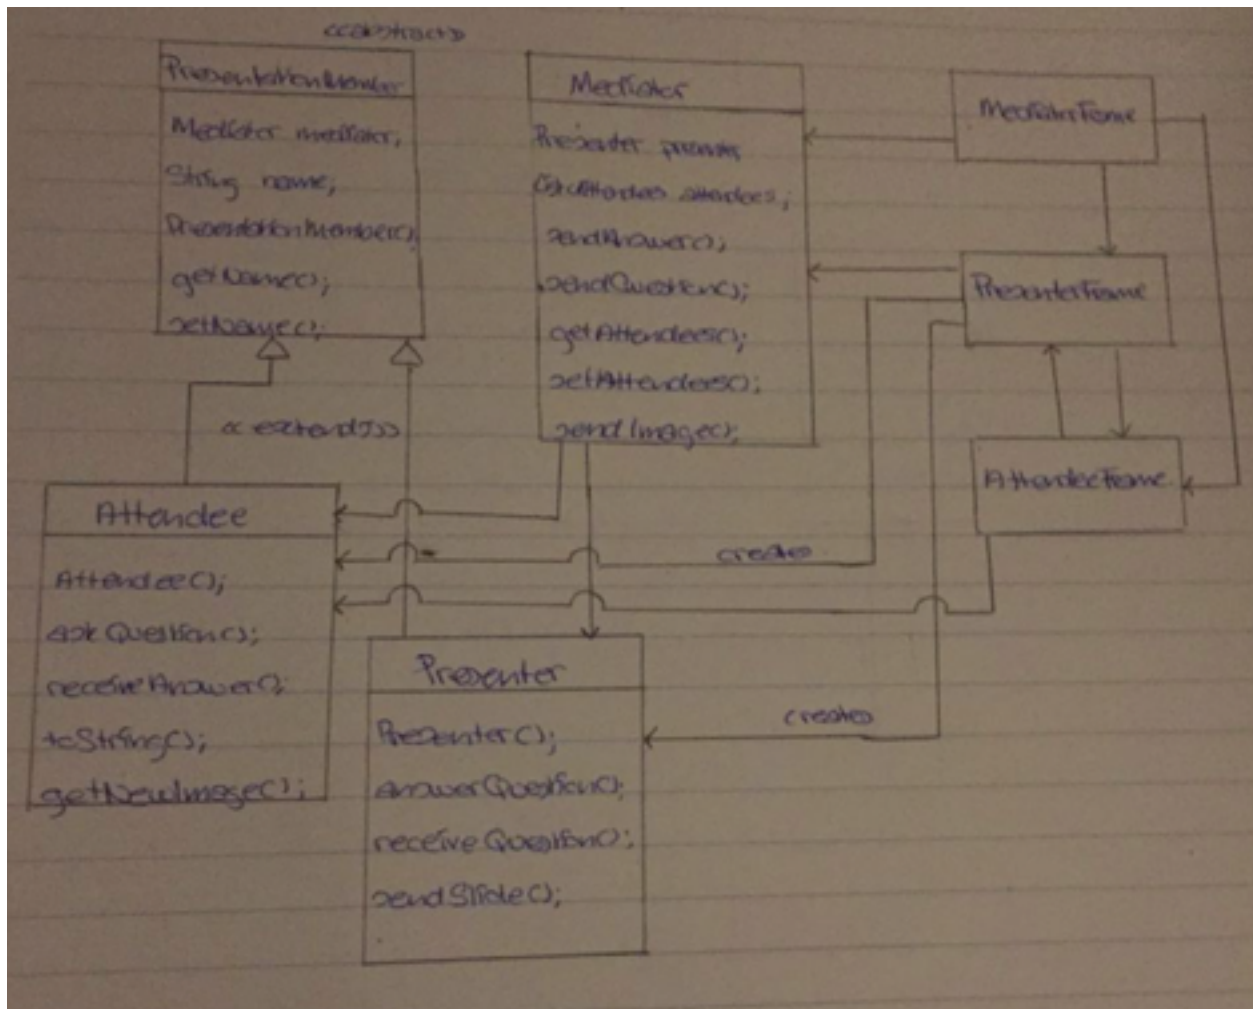 <<abstract>>
PresentationMember
Mediator mediator;
String name;
PresentationMember();
getName();
setName();
Mediator
Presenter
List<Attendee> attendees;
sendAnswer();
sendQuestion();
getAttendees();
setAttendees();
sendImage();
MediatorFrame
PresenterFrame
AttendeeFrame
<<extends>>
creates
creates
Attendee
Attendee();
askQuestion();
receiveAnswer();
toString();
getNewImage();
Presenter
Presenter();
answerQuestion();
receiveQuestion();
sendSlide();